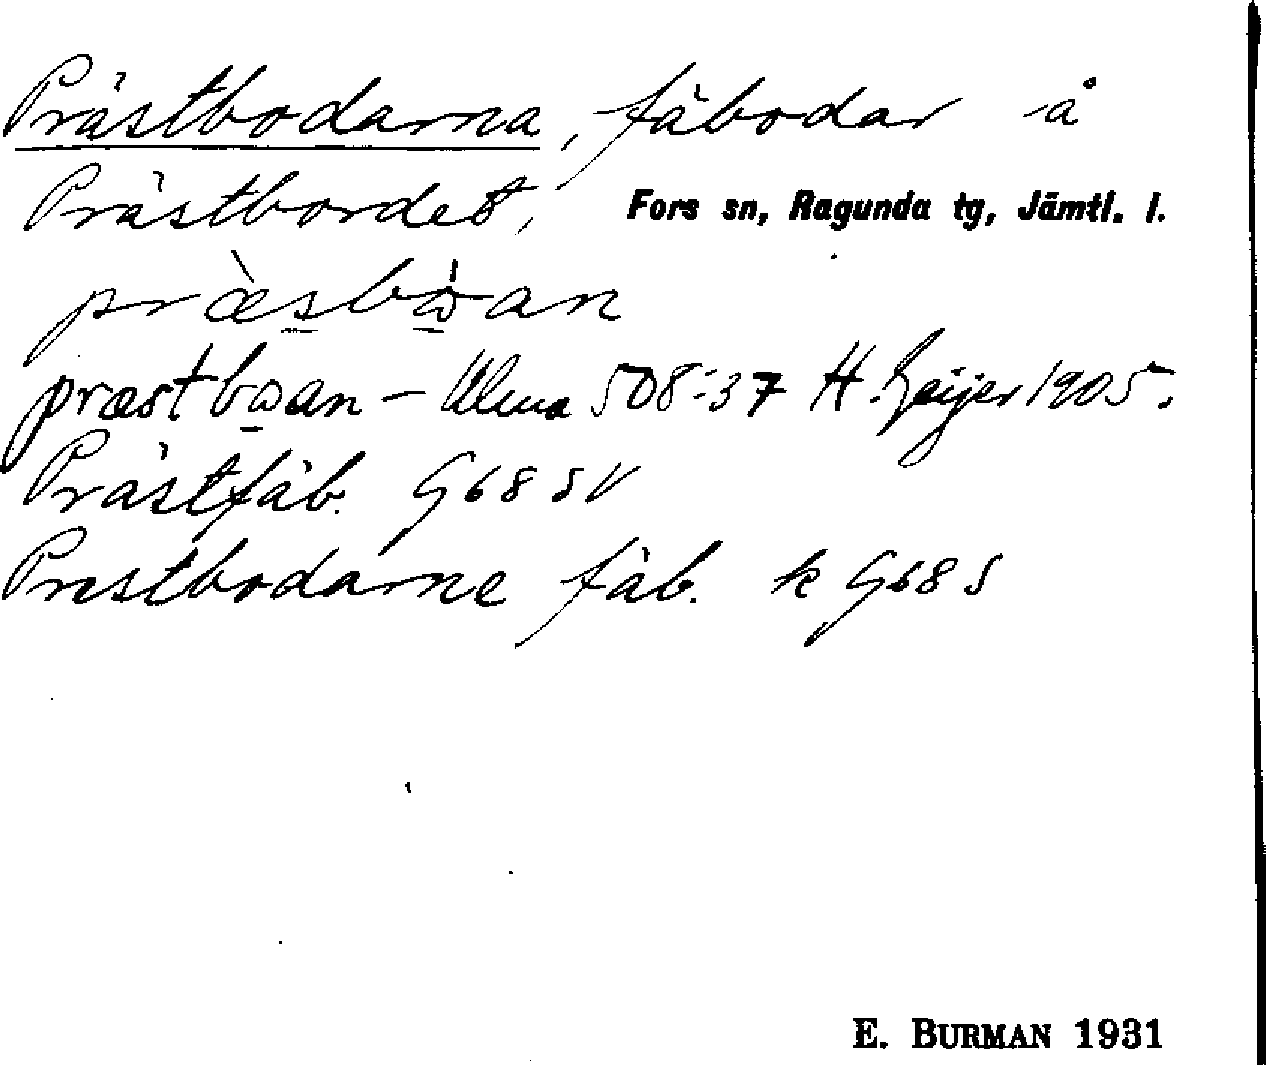 Prästbodarna, fäbodar å
Prästbordet, Fors sn, Ragunda tg, Jämtl. l.
præ̀sbɷ̀an
præstbɷan – Ulma 508:37 H. Geijer 1905.
Prästfäb. G68 SV
Prestbodarne fäb. k G68 S
E. BURMAN 1931